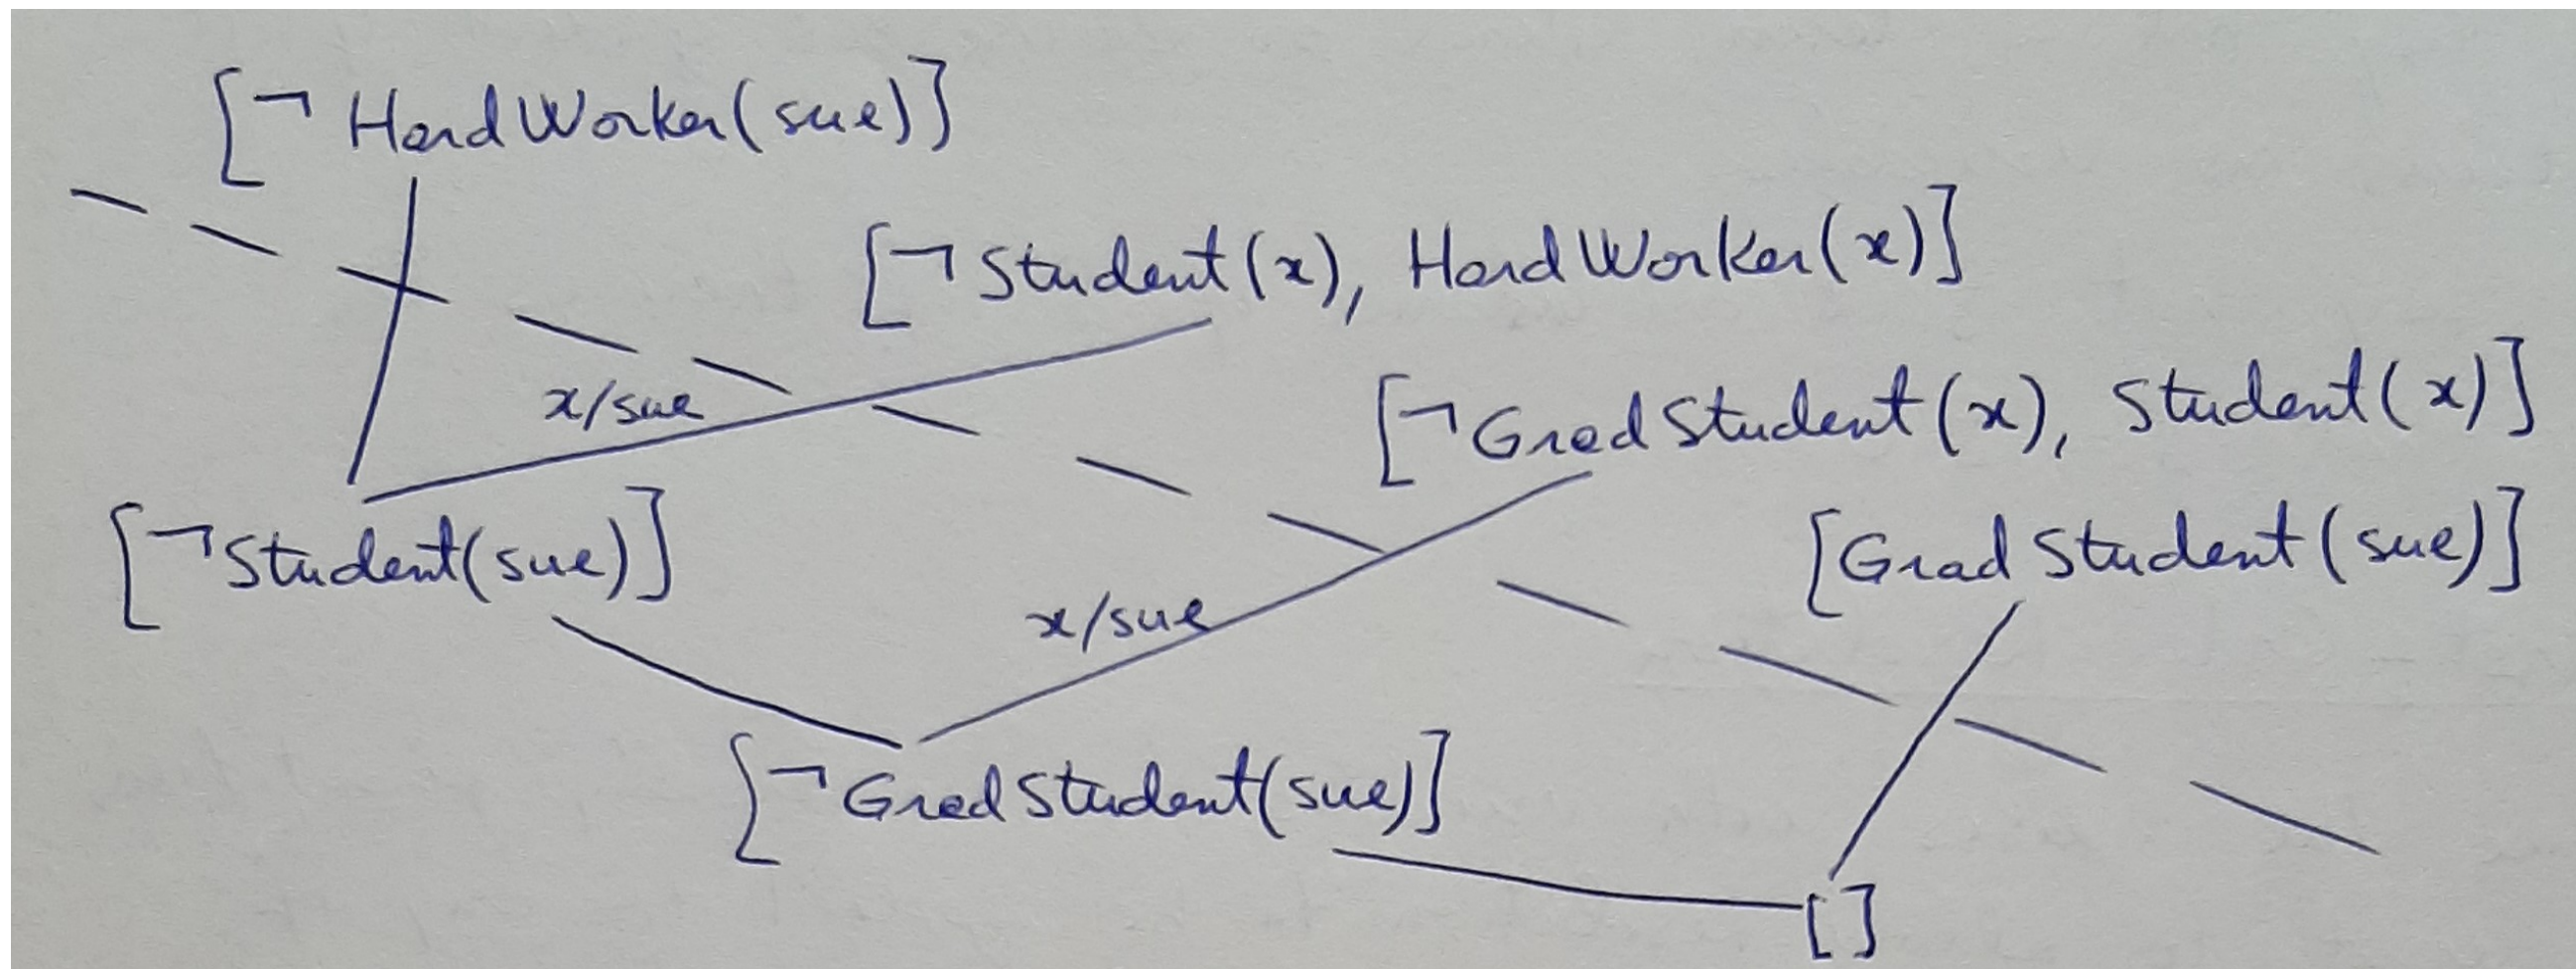 [¬ HardWorker(sue)]
[¬Student(x), HardWorker(x)]
x/sue
[¬GradStudent(x), Student(x)]
[¬Student(sue)]
[GradStudent(sue)]
x/sue
[¬GradStudent(sue)]
[]